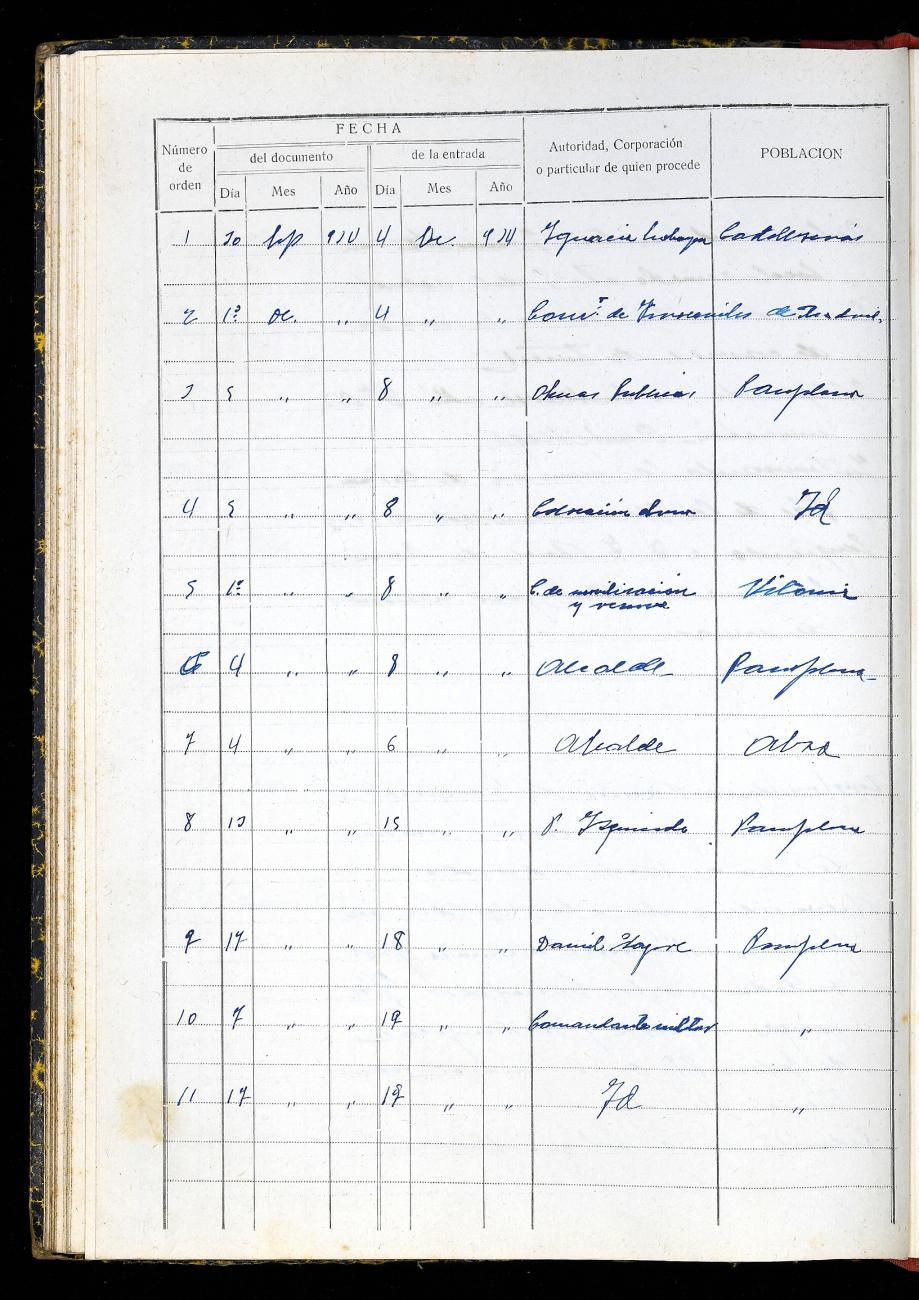 FECHA
Número de orden
del documento
de la entrada
Autoridad, Corporación o particular de quien procede
POBLACION
Día Mes Año Día Mes Año
1 30 Sep 934 4 Oc. 934 Ignacio
2 1º Oc. „ 4 „ „ de de
3 5 „ „ 8 „ „ Obras Publicas Pamplona
4 5 „ „ 8 „ „ Id
5 1º „ „ 8 „ „ C. de movilización y reserva Vitoria
6 4 „ „ 8 „ „ Alcalde Pamplona
7 4 „ „ 6 „ „ Alcalde
8 13 „ „ 15 „ „ P. Izquierdo Pamplona
9 17 „ „ 18 „ „ Daniel Pamplona
10 7 „ „ 19 „ „ Comandante militar „
11 17 „ „ 19 „ „ Id „